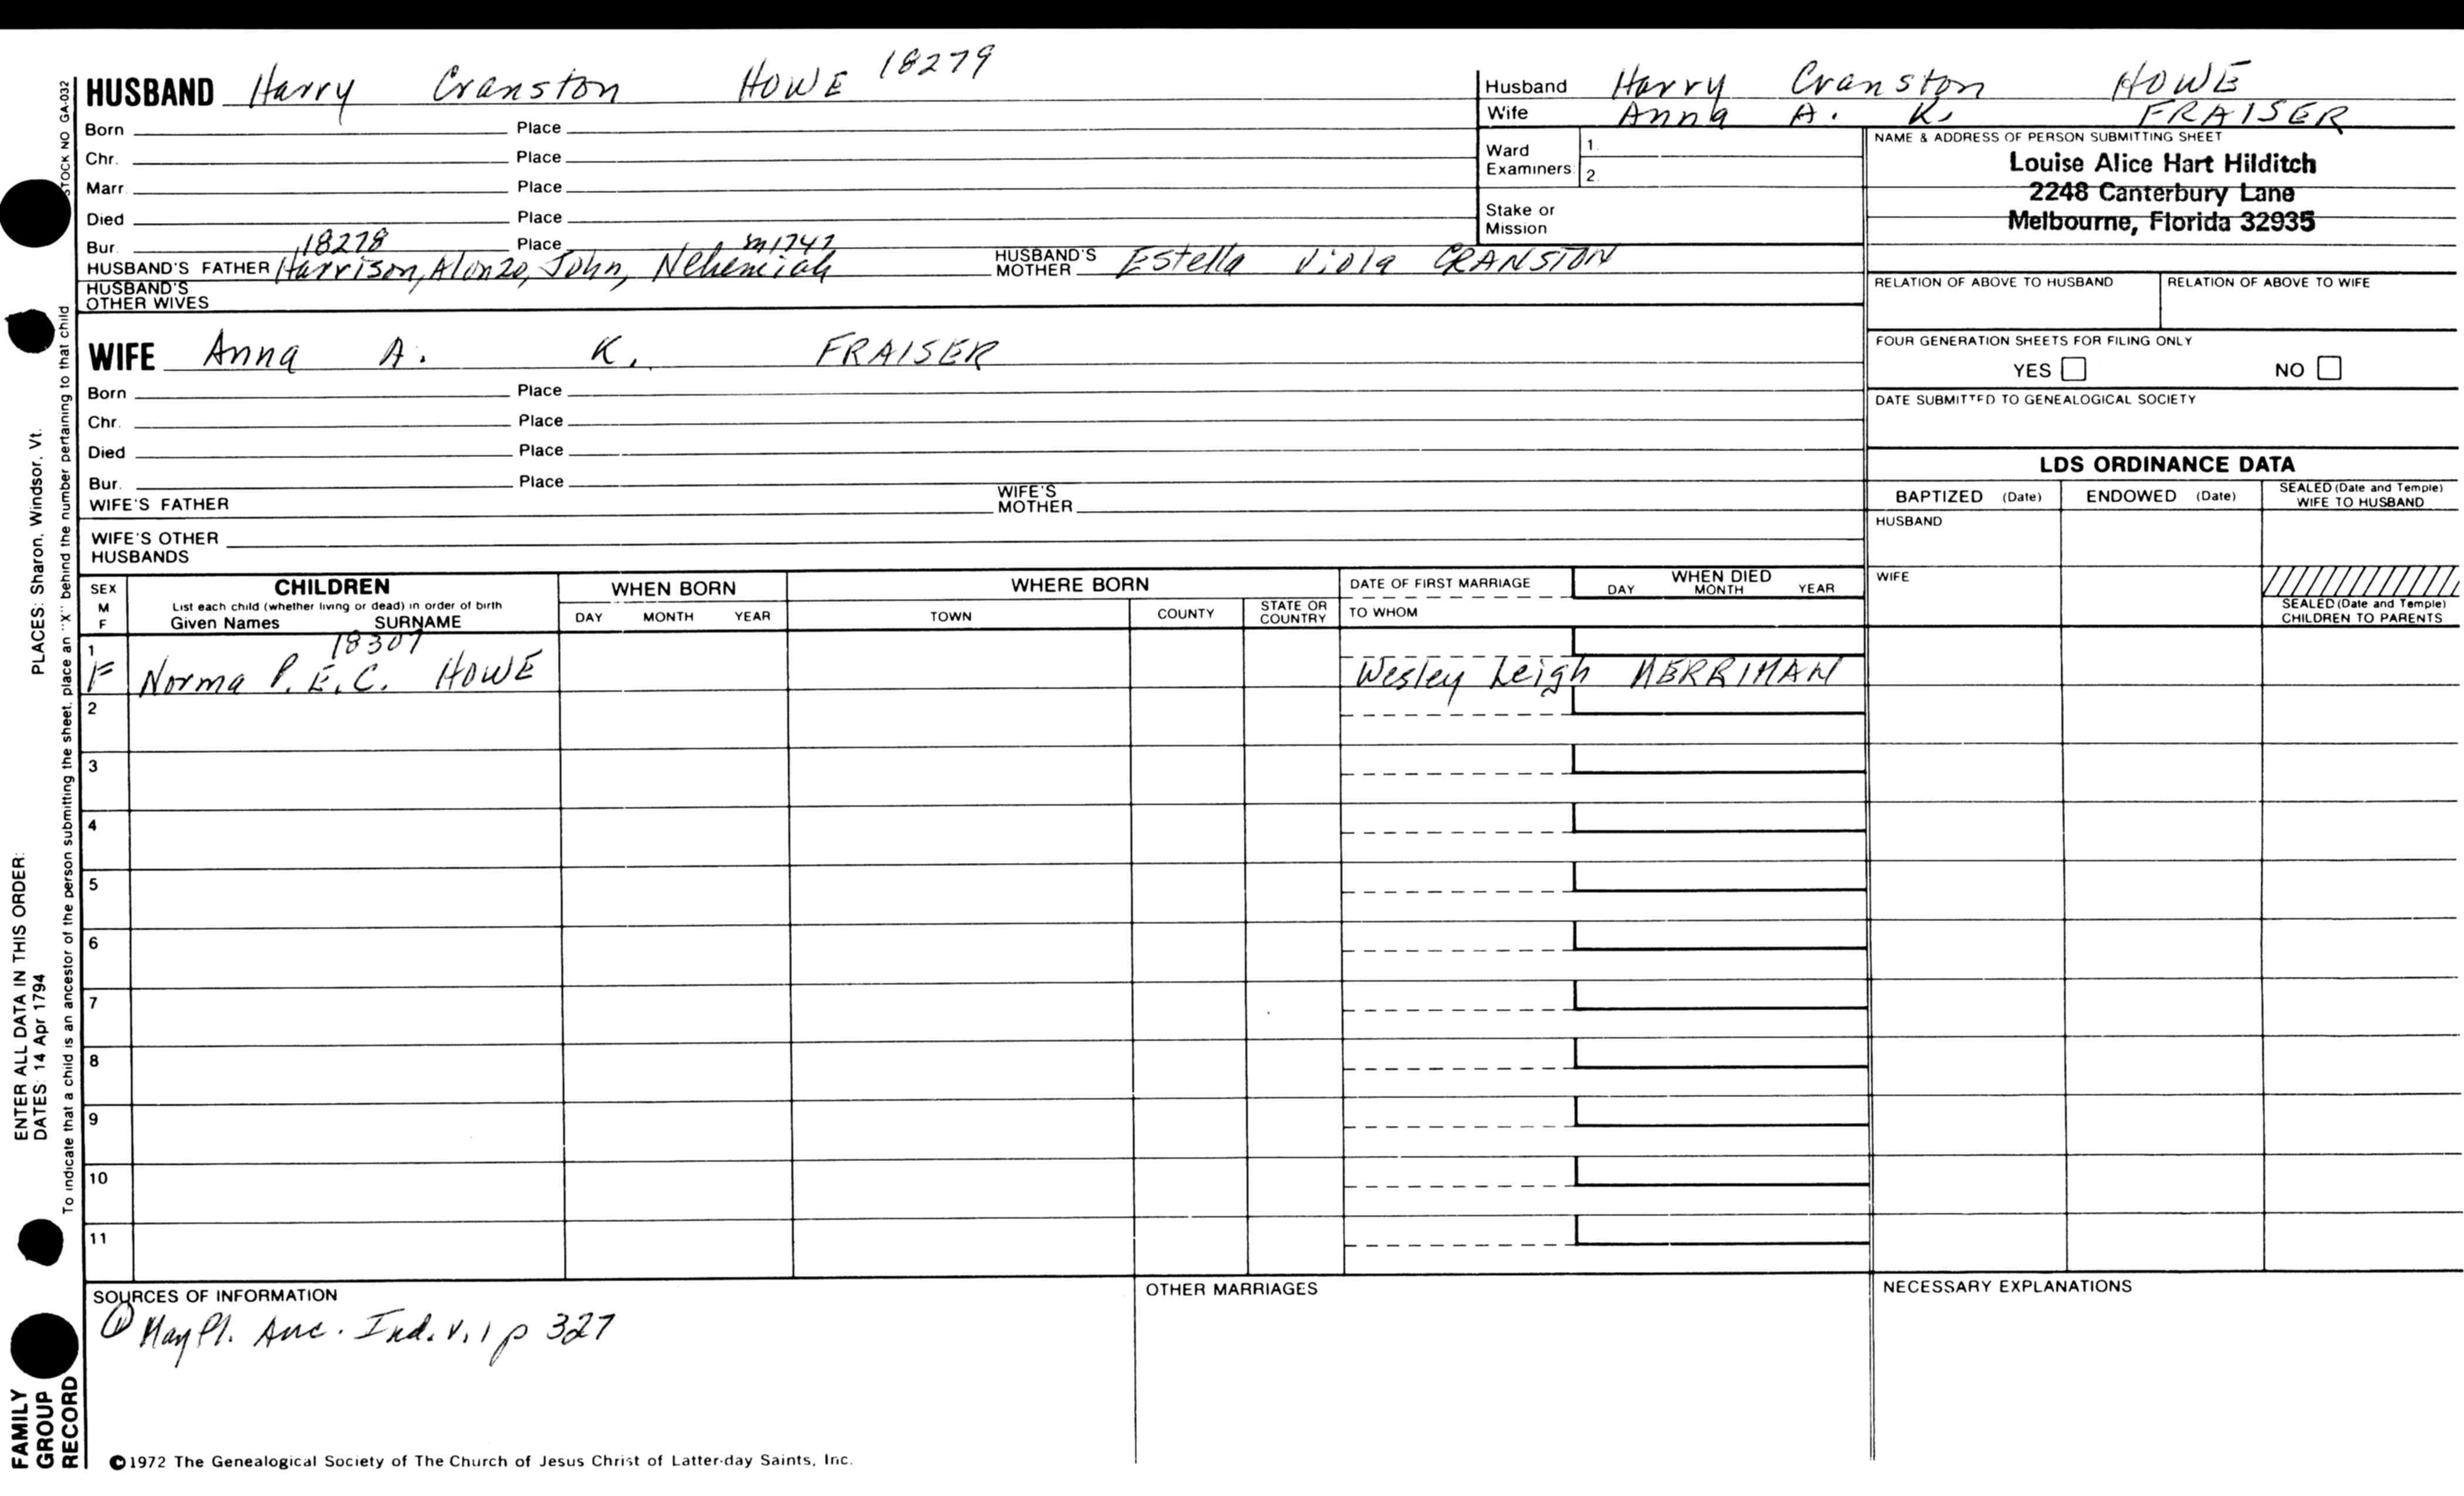 HUSBAND Harry Cranston HOWE 18279
Born Place
Chr. Place
Marr. Place
Died Place
Bur. Place
18278 m1747
HUSBAND'S FATHER Harrison, Alonzo, John, Nehemiah HUSBAND'S MOTHER Estella Viola CRANSTON
HUSBAND'S OTHER WIVES
WIFE Anna A. K. FRAISER
Born Place
Chr. Place
Died Place
Bur. Place
WIFE'S FATHER WIFE'S MOTHER
WIFE'S OTHER HUSBANDS
Husband Harry Cranston HOWE
Wife Anna A. K. FRAISER
Ward Examiners: 1.
2.
Stake or Mission
NAME & ADDRESS OF PERSON SUBMITTING SHEET
Louise Alice Hart Hilditch
2248 Canterbury Lane
Melbourne, Florida 32935
RELATION OF ABOVE TO HUSBAND RELATION OF ABOVE TO WIFE
FOUR GENERATION SHEETS FOR FILING ONLY
YES NO
DATE SUBMITTED TO GENEALOGICAL SOCIETY
LDS ORDINANCE DATA
BAPTIZED (Date) ENDOWED (Date) SEALED (Date and Temple) WIFE TO HUSBAND
HUSBAND
WIFE
SEALED (Date and Temple) CHILDREN TO PARENTS
SEX M F
CHILDREN
List each child (whether living or dead) in order of birth
Given Names SURNAME
WHEN BORN
DAY MONTH YEAR
WHERE BORN
TOWN COUNTY STATE OR COUNTRY
DATE OF FIRST MARRIAGE
TO WHOM
WHEN DIED
DAY MONTH YEAR
18307
1 F Norma P. E. C. HOWE Wesley Leigh MERRIMAN
2
3
4
5
6
7
8
9
10
11
SOURCES OF INFORMATION
① May Pl. Anc. Ind. v. 1 p 327
OTHER MARRIAGES
NECESSARY EXPLANATIONS
©1972 The Genealogical Society of The Church of Jesus Christ of Latter-day Saints, Inc.
STOCK NO GA-032
To indicate that a child is an ancestor of the person submitting the sheet, place an "X" behind the number pertaining to that child
ENTER ALL DATA IN THIS ORDER:
DATES: 14 Apr 1794 PLACES: Sharon, Windsor, Vt.
FAMILY
GROUP
RECORD